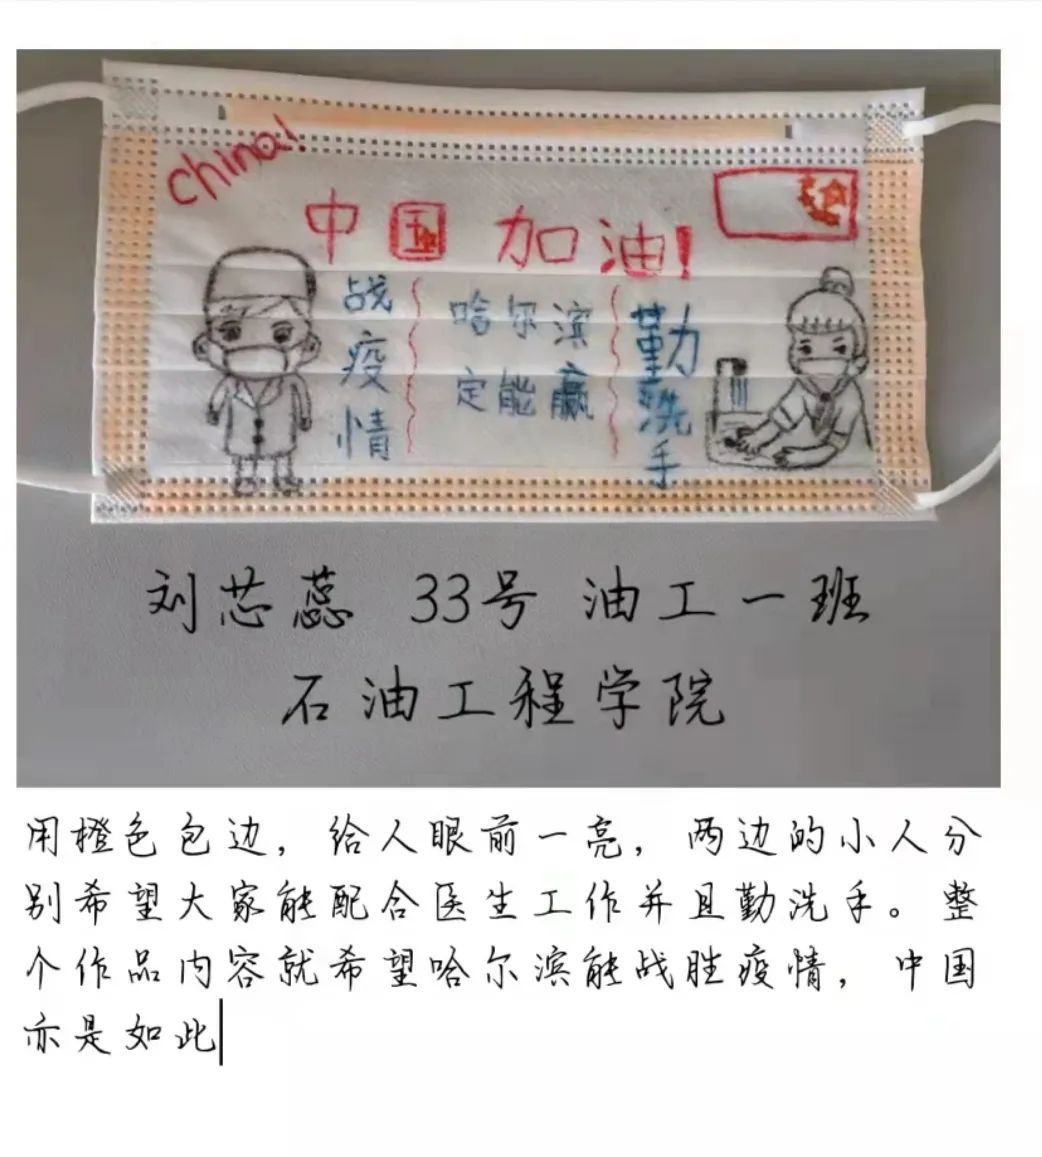 China!
中国 加油!
战疫情
哈尔滨
定能赢
勤洗手
刘芯蕊 33号 油工一班
石油工程学院
用橙色包边，给人眼前一亮，两边的小人分
别希望大家能配合医生工作并且勤洗手。整
个作品内容就希望哈尔滨能战胜疫情，中国
亦是如此